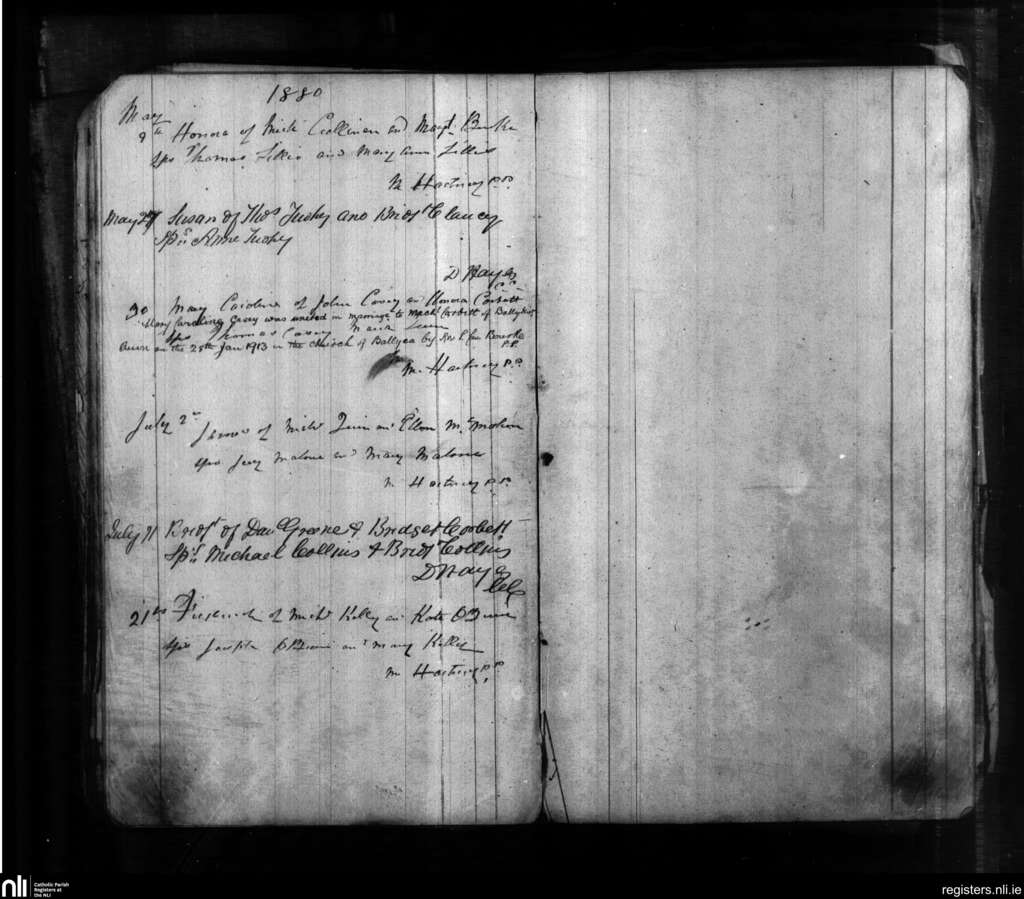 1880
May
9th Honora of Mich Cullinan and Margt Burke
Sps Thomas Lillis and Mary Ann Lillis
M Hartney P.P.
May 27 Susan of Thos Tuohy and Bridt Clancy
Sps Anne Tuohy
D Hayes
C.C.
30 Mary Caroline of John Casey an Honora Corbett
Mary Caroline Casey was united in marriage to Michl Corbett of
Sps Thomas Casey Maria
on the 25th Jan 1913 in the Church of Ballyea by Rev P. Bourke
P.P.
M Hartney P.P.
July 2nd James of Mich Quin an Ellen McMahon
Sps Jerry Malone and Mary Malone
M Hartney P.P.
July 11 Bridt of Danl Greene & Bridget Corbett
Sps Michael Collins & Bridt Collins
D Hayes
CC
21st Frederick of Mich Kelly an Kate
Sps Joseph and Mary Kelly
M Hartney P.P.
nli
Catholic Parish
Registers at
the NLI
registers.nli.ie